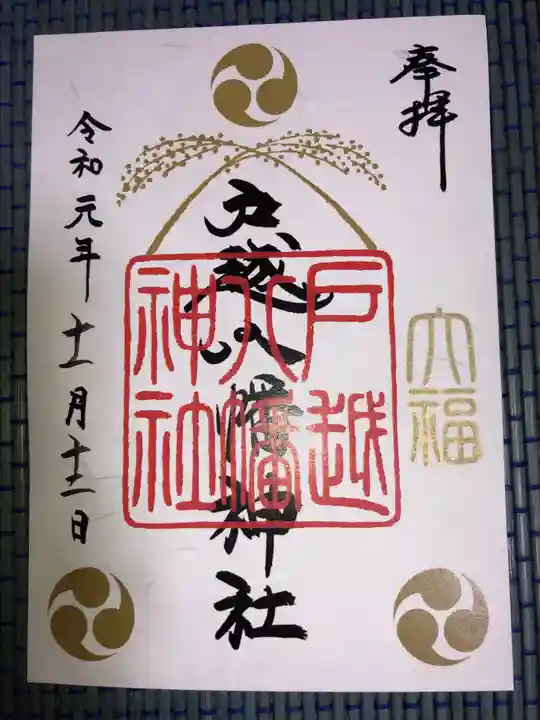 奉拝
大福
戸越八幡神社
戸越
八幡
神社
令和元年十一月十二日